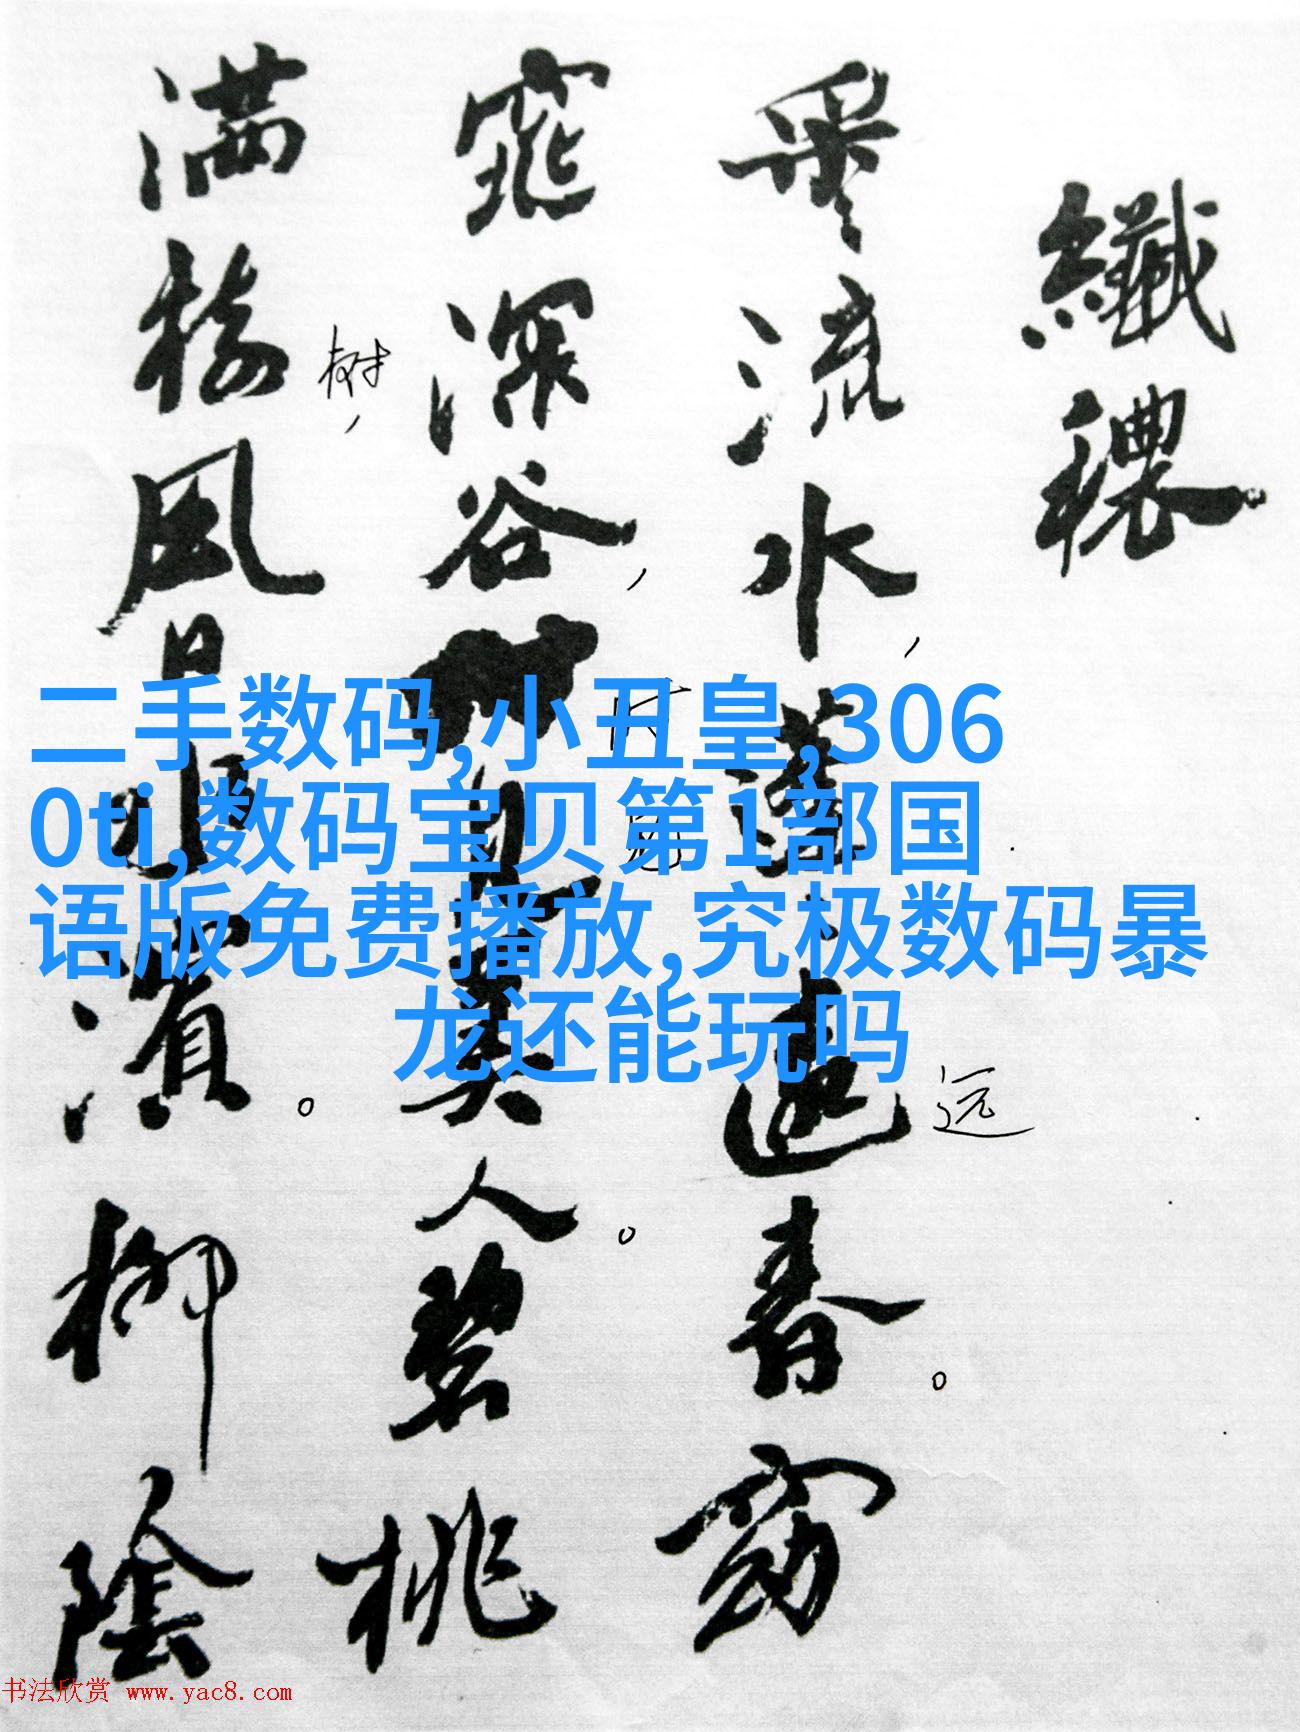 纖穠
采流水,蓬遠春。窈
远
窕深谷,見美人。碧桃
满樹風日水濱。柳陰
树,
二手数码,小丑皇,306
0ti,数码宝贝第1部国
语版免费播放,究极数码暴
龙还能玩吗
书法欣赏 www.yac8.com